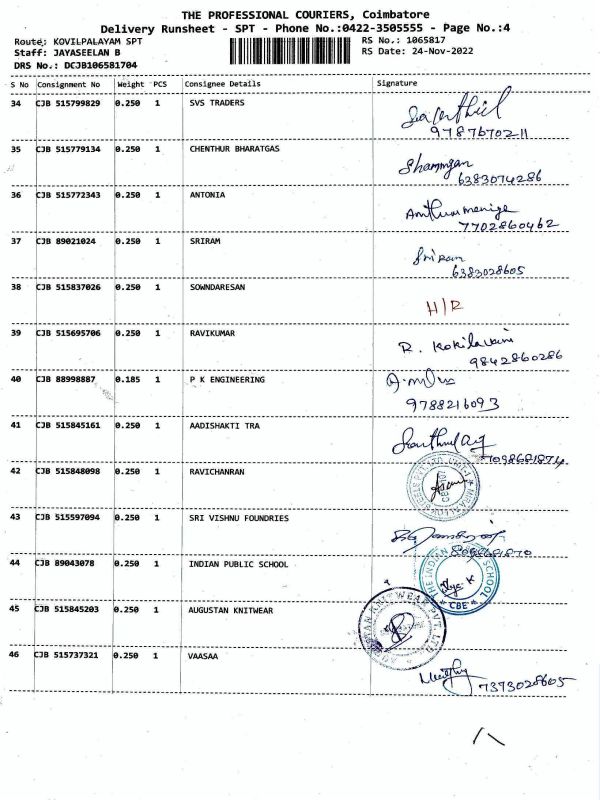 THE PROFESSIONAL COURIERS, Coimbatore
Delivery Runsheet - SPT - Phone No.:0422-3505555 - Page No.:4
Route: KOVILPALAYAM SPT
RS No.: 1065817
Staff: JAYASEELAN B
RS Date: 24-Nov-2022
DRS No.: DCJB106581704
S No Consignment No Weight PCS Consignee Details Signature
34 CJB 515799829 0.250 1 SVS TRADERS
9787670211
35 CJB 515779134 0.250 1 CHENTHUR BHARATGAS
6383074286
36 CJB 515772343 0.250 1 ANTONIA
7702860462
37 CJB 89021024 0.250 1 SRIRAM Sriram
6383028605
38 CJB 515837026 0.250 1 SOWNDARESAN
H/R
39 CJB 515695706 0.250 1 RAVIKUMAR R. Kokilavani
9842860286
40 CJB 88998887 0.185 1 P K ENGINEERING
9788216093
41 CJB 515845161 0.250 1 AADISHAKTI TRA
7098681874
42 CJB 515848098 0.250 1 RAVICHANRAN
43 CJB 515597094 0.250 1 SRI VISHNU FOUNDRIES
8098681870
44 CJB 89043078 0.250 1 INDIAN PUBLIC SCHOOL
THE INDIAN SCHOOL
* CBE *
45 CJB 515845203 0.250 1 AUGUSTAN KNITWEAR
KNITWEAR PVT. LTD.
46 CJB 515737321 0.250 1 VAASAA
7373028605